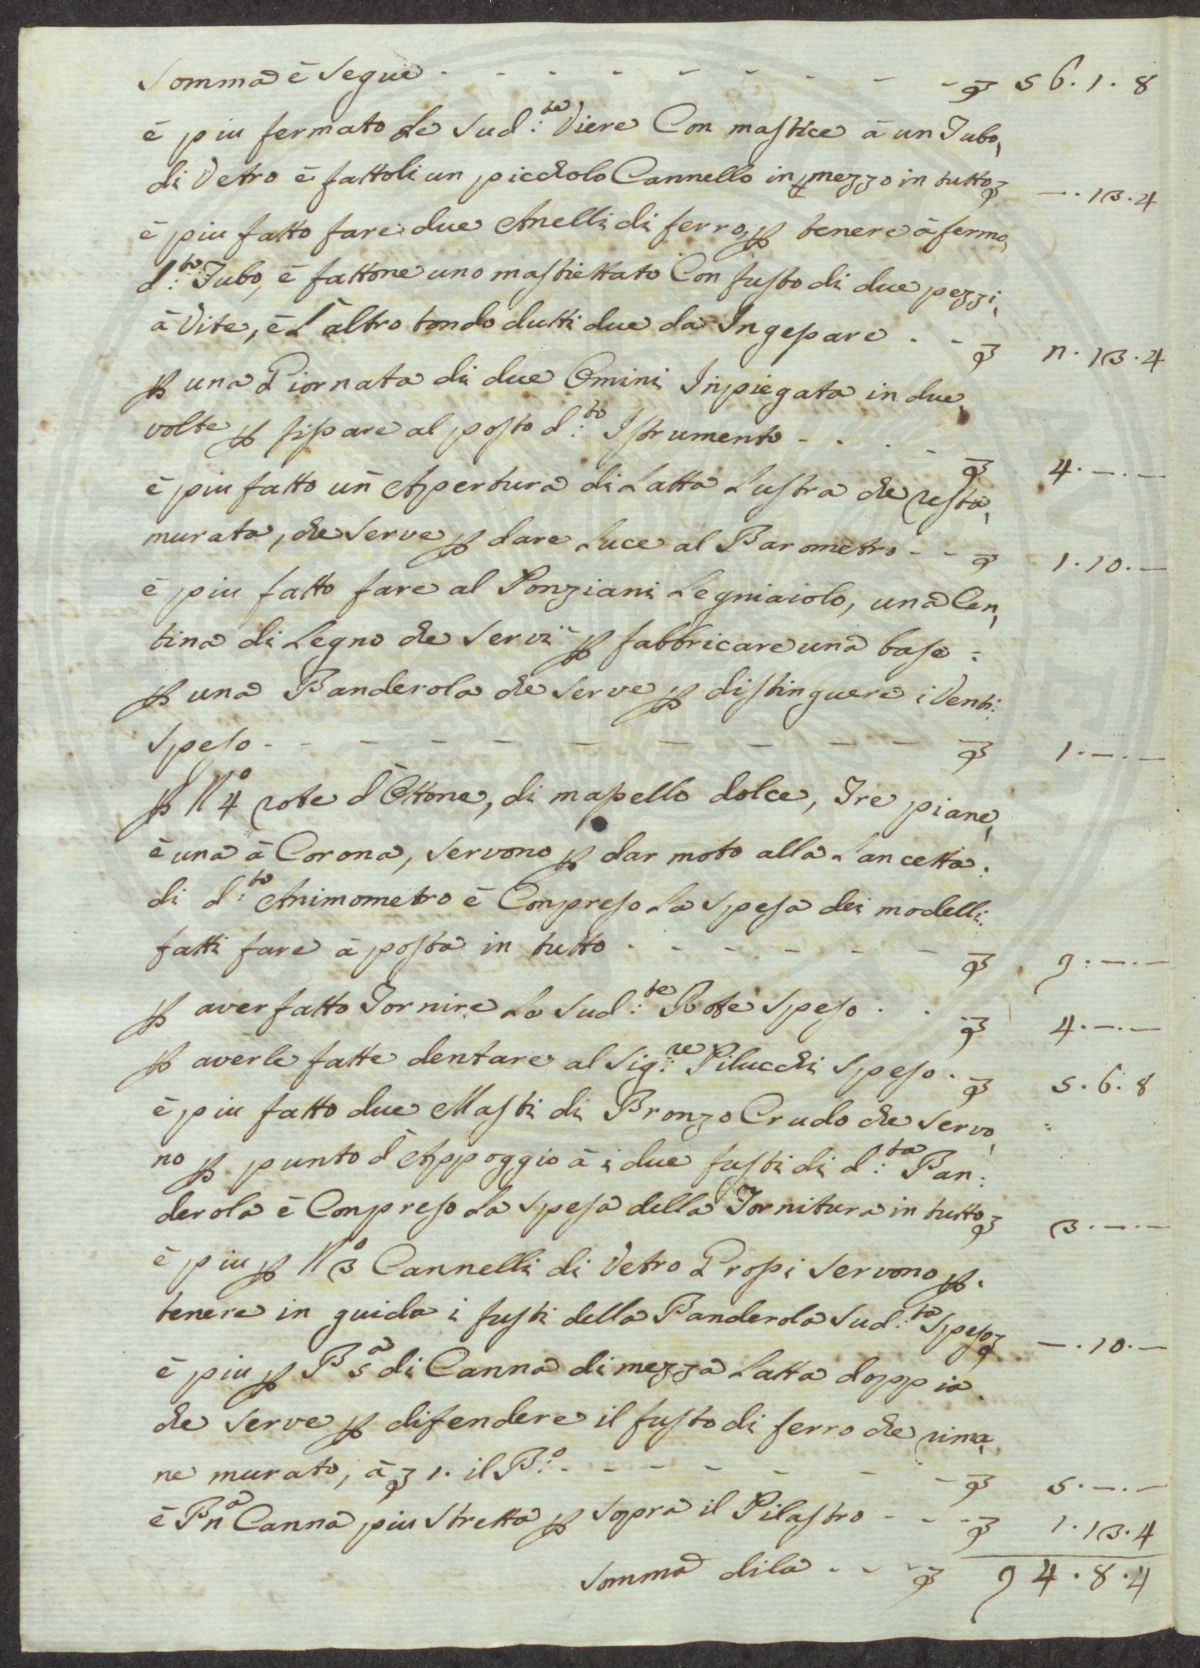 Somma è Segue - - - - - - - - - £ 56. 1. 8
è piu fermato Le Sud:te Viere Con mastice à un Tubo,
di Vetro è fattoli un picciolo Cannello in mezzo in tutto £ —. 13. 4
è piu fatto fare due Anelli di ferro, ꝑ tenere à fermo,
d:to Tubo, è fattone uno mastiettato Con fusto di due pezzi,
à Vite, è L'altro tondo dutti due da Ingessare . - - £ 2. 13. 4
ꝑ una Giornata di due Omini Inpiegata in due,
volte ꝑ fissare al posto d:to Istrumento - . . - £ 4. —. —
è piu fatto un Apertura di Latta Lustra che resta,
murata, che Serve ꝑ dare Luce al Barometro - - £ 1. 10. —
è piu fatto fare al Ponziani Legniaiolo, una Cen,
tina di Legno che Servi ꝑ fabbricare una base :
ꝑ una Banderola che Serve ꝑ distinguere i Venti:
Speso - - - - - - - - - - £ 1. —. —
ꝑ No 4 rote d'Ottone, di massello dolce, Tre piane,
è una à Corona, servono ꝑ dar moto alla Lancetta.
di d:to Animometro è Conpreso La Spesa dei modelli
fatti fare à posta in tutto - - - - - - £ 9. —. —
ꝑ aver fatto Tornire Le Sud:te Rote Speso . . - £ 4. —. —
ꝑ averle fatte dentare al Sig:re Pilucchi Speso . - £ 5. 6. 8
è piu fatto due Masti di Bronzo Crudo che Servo,
no ꝑ punto d'Appoggio à i due fusti di d:ta Ban:
derola è Conpreso La Spesa della Tornitura in tutto £ 3. —. —
è piu ꝑ No 3 Cannelli di Vetro Grossi Servono ꝑ.
tenere in guida i fusti della Banderola Sud:ta Speso £ —. 10. —
è piu ꝑ Ba 5 di Canna di mezza Latta doppia.
che Serve ꝑ difendere il fusto di ferro che rima,
ne murato, à £ 1. il B:o - - - - - - - £ 5. —. —
è Ba 2 Canna piu Stretta ꝑ Sopra il Pilastro - - - £ 1. 13. 4
Somma dila - - - £ 94. 8. 4